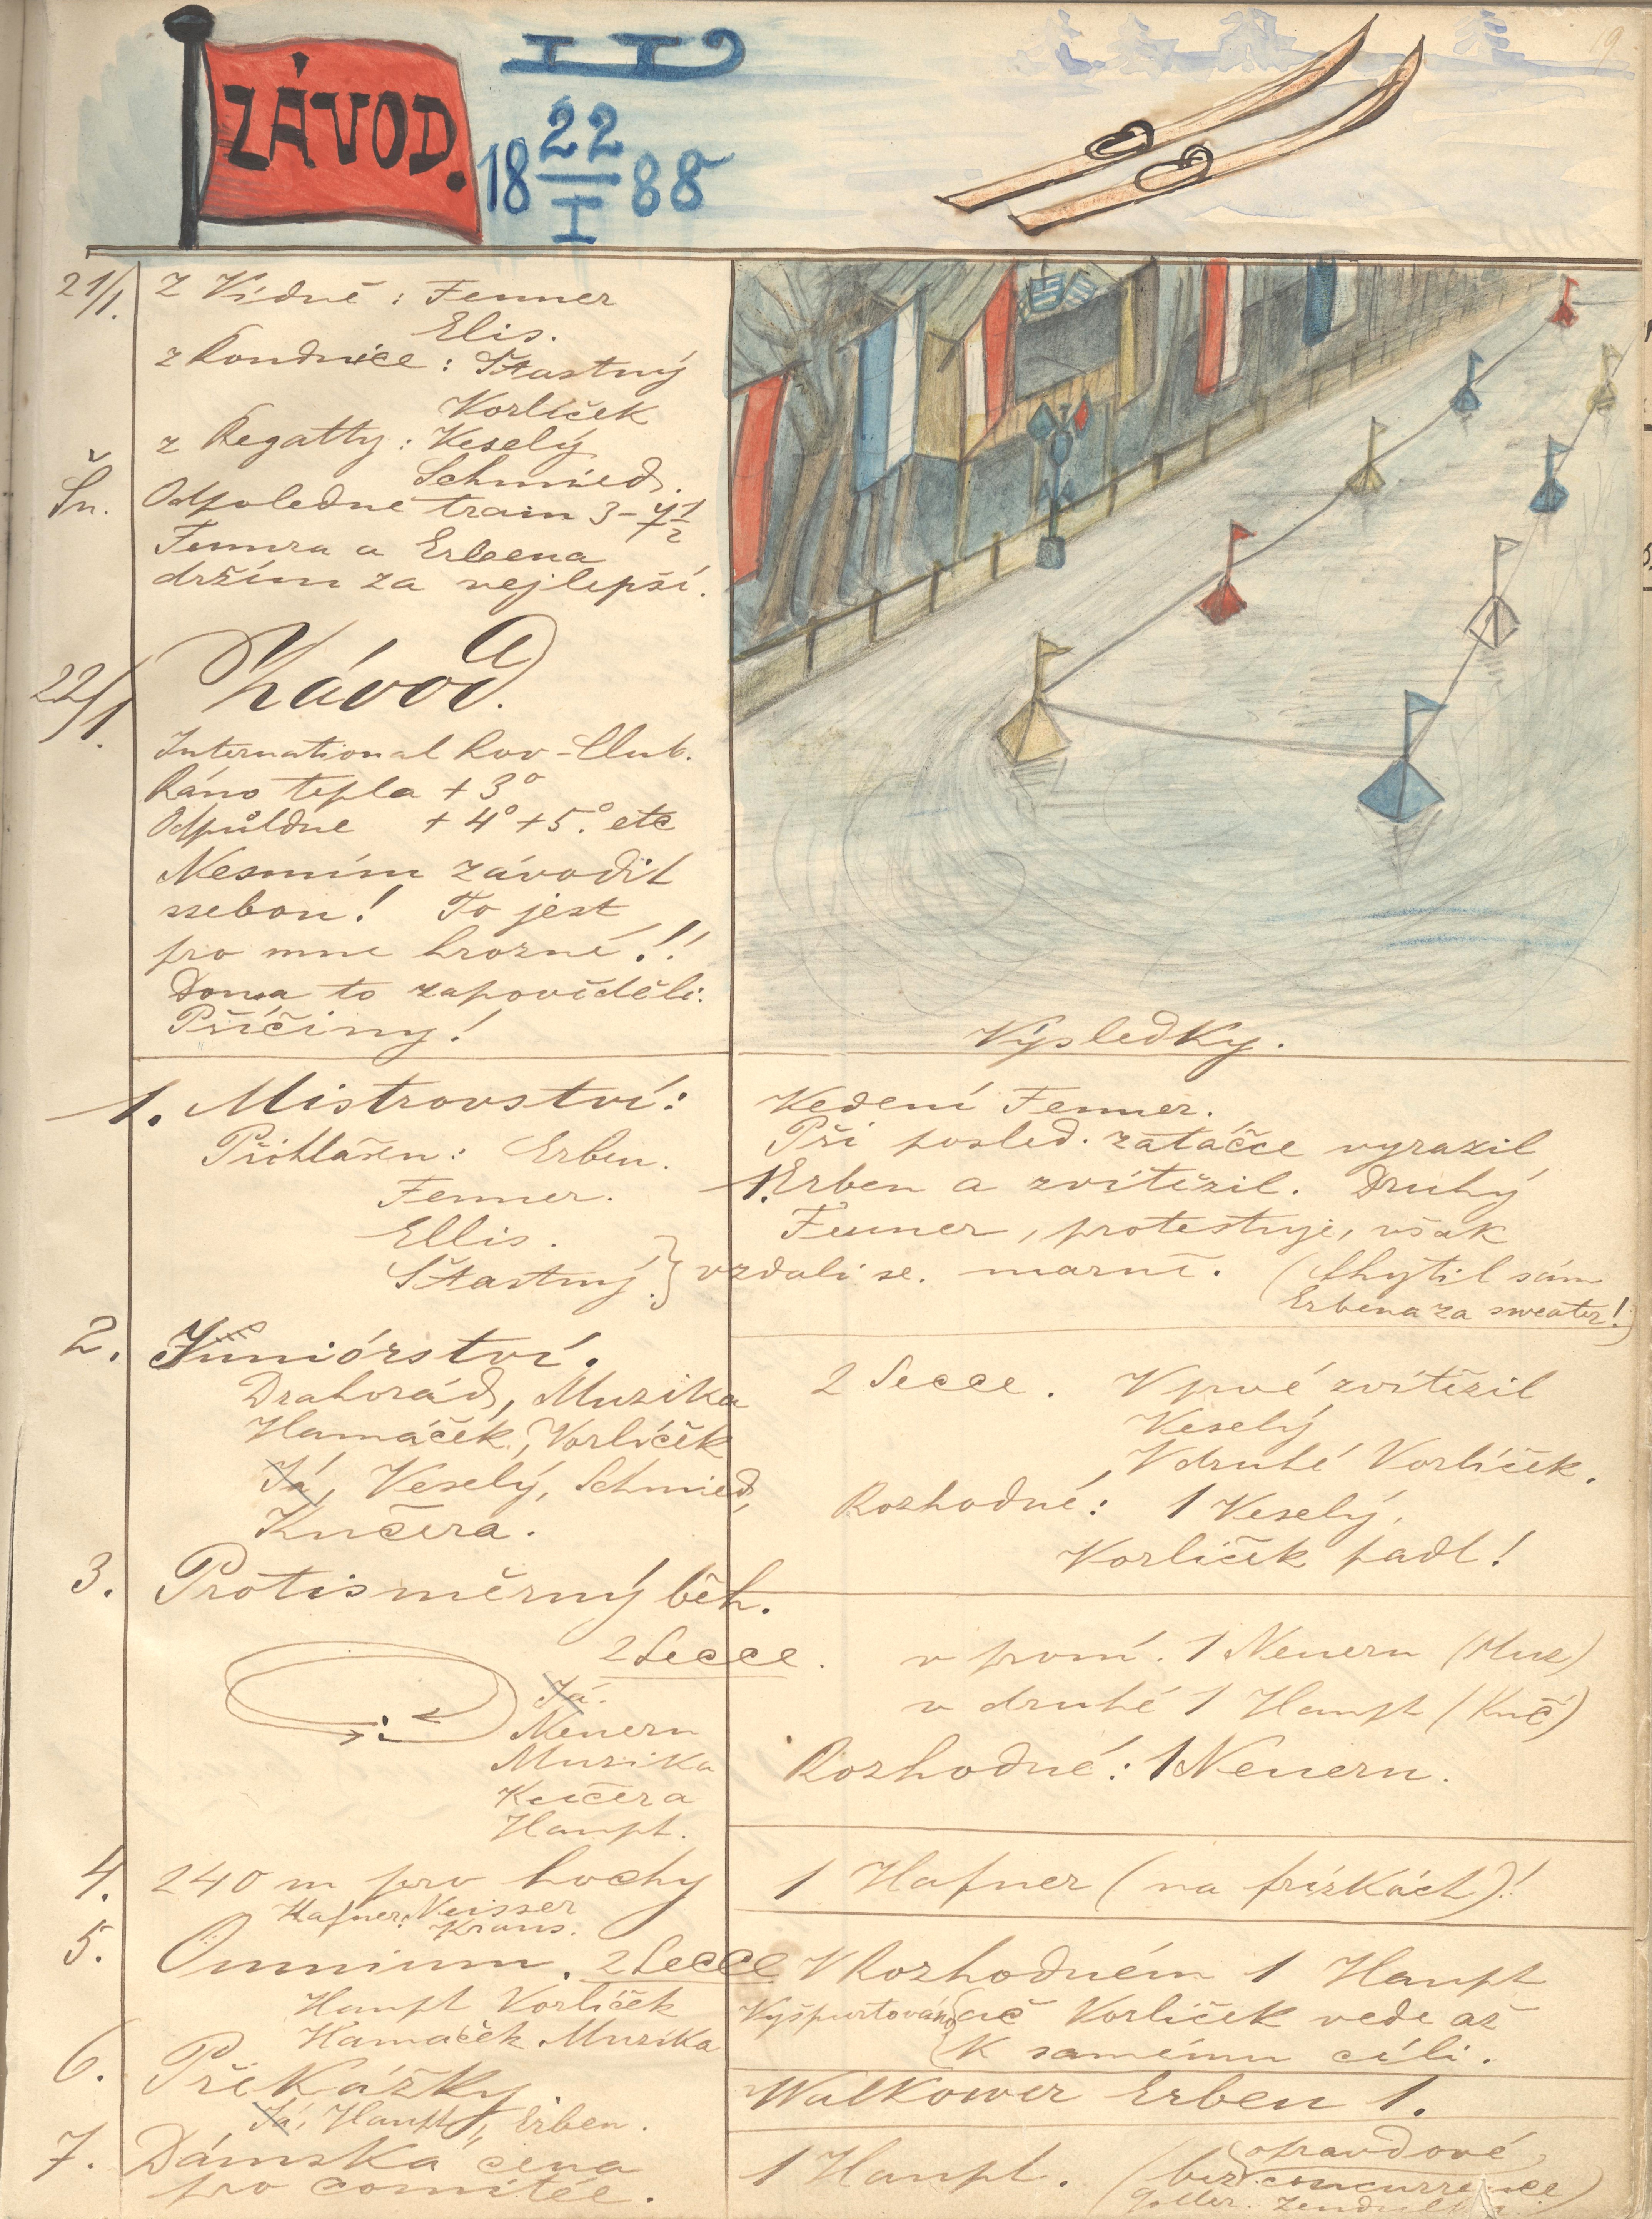 ZÁVOD.
18 22/I 88
19
21/1. Z Vídně: Fenner
Elis.
z Roudnice: Šťastný
Vorlíček
z Regatty: Veselý
Schmied.
Sn. Odpoledne train 3-7 1/2
Fennra a Erbena
držím za nejlepší.
22/1. Závod.
International Rov-Club.
Ráno tepla +3°
Odpůldne +4° +5.° etc
Nesmím závodit
ssebou! To jest
pro mne hrozné!!
Doma to zapověděli.
Příčiny!
Výsledky.
1. Mistrovství:
Přihlášen: Erben.
Fenner.
Ellis.
Šťastný } vzdali se.
Vedení Fenner.
Při posled. zatáčce vyrazil
1. Erben a zvítězil. Druhý
Fenner, protestuje, však
marně. (Chytil sám
Erbena za sweater!)
2. Juniórství.
Drahorád, Muzika
Hamáček, Vorlíček
Já, Veselý, Schmied,
Kučera.
2 Secce. V prvé zvítězil
Veselý
V druhé Vorlíček.
Rozhodné: 1 Veselý.
Vorlíček padl!
3. Protisměrný běh.
2 Secce.
Já.
Neuern
Muzika
Kučera
Haupt.
v první. 1 Neuern (Muz)
v druhé 1 Haupt (Kuč)
Rozhodné: 1 Neuern.
4. 240 m pro hochy
Hafner, Neisser
Kraus.
1 Hafner (na frízkách)!
5. Omnium. 2 Secce
Haupt Vorlíček
Hamáček, Muzika
V Rozhodném 1 Haupt
Vyšpurtováno { ač Vorlíček vede až
k samému cíli.
6. Překážky.
Já, Haupt, Erben.
Walkower Erben 1.
7. Dámská cena
pro comitée.
1 Haupt. (bez opravdové
concurrence)